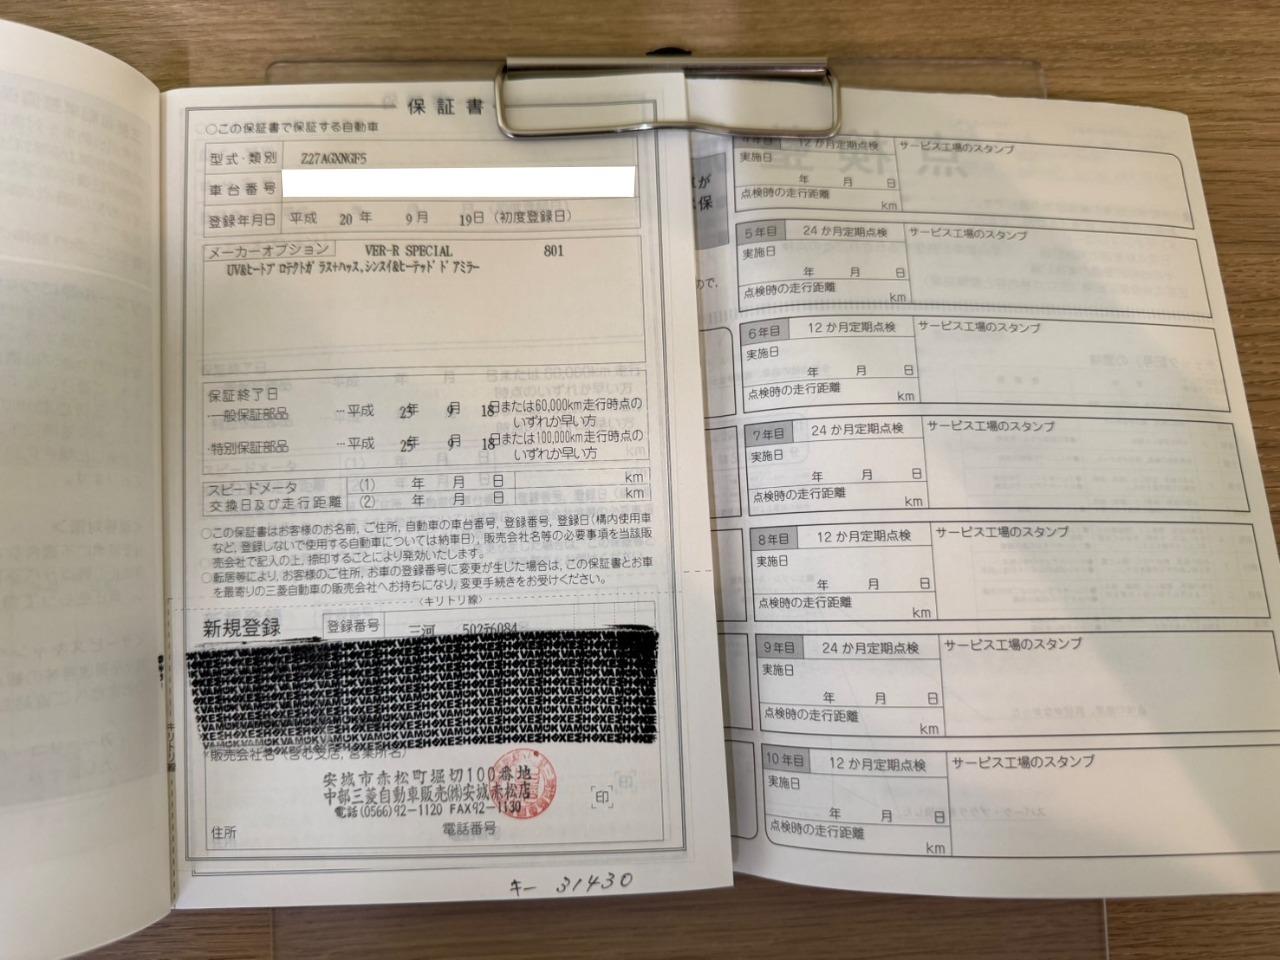 保証書
○この保証書で保証する自動車
型式・類別 Z27AGXNGF5
車台番号
登録年月日 平成 20年 9月 19日(初度登録日)
メーカーオプション VER-R SPECIAL 801
UV&ヒートプロテクトガラス+ハッス,シンスイ&ヒーテッドドアミラー
保証終了日
・一般保証部品 …平成 25年 9月 18日または60,000km走行時点の
いずれか早い方
・特別保証部品 …平成 25年 9月 18日または100,000km走行時点の
いずれか早い方
スピードメータ (1) 年 月 日 km
交換日及び走行距離 (2) 年 月 日 km
○この保証書はお客様のお名前,ご住所,自動車の車台番号,登録番号,登録日(構内使用車
など,登録しないで使用する自動車については納車日),販売会社名等の必要事項を当該販
売会社で記入の上,捺印することにより発効いたします。
○転居等により,お客様のご住所,お車の登録番号に変更が生じた場合は,この保証書とお車
を最寄りの三菱自動車の販売会社へお持ちになり,変更手続きをお受けください。
〈キリトリ線〉
新規登録 登録番号 三河
販売会社名(含む支店,営業所名)
安城市赤松町堀切100番地
中部三菱自動車販売㈱安城赤松店
電話(0566)92-1120 FAX92-1130
印
住所 電話番号
キー 31430
キリトリ線
4年目 12か月定期点検 サービス工場のスタンプ
実施日
年 月 日
点検時の走行距離
km
5年目 24か月定期点検 サービス工場のスタンプ
実施日
年 月 日
点検時の走行距離
km
6年目 12か月定期点検 サービス工場のスタンプ
実施日
年 月 日
点検時の走行距離
km
7年目 24か月定期点検 サービス工場のスタンプ
実施日
年 月 日
点検時の走行距離
km
8年目 12か月定期点検 サービス工場のスタンプ
実施日
年 月 日
点検時の走行距離
km
9年目 24か月定期点検 サービス工場のスタンプ
実施日
年 月 日
点検時の走行距離
km
10年目 12か月定期点検 サービス工場のスタンプ
実施日
年 月 日
点検時の走行距離
km